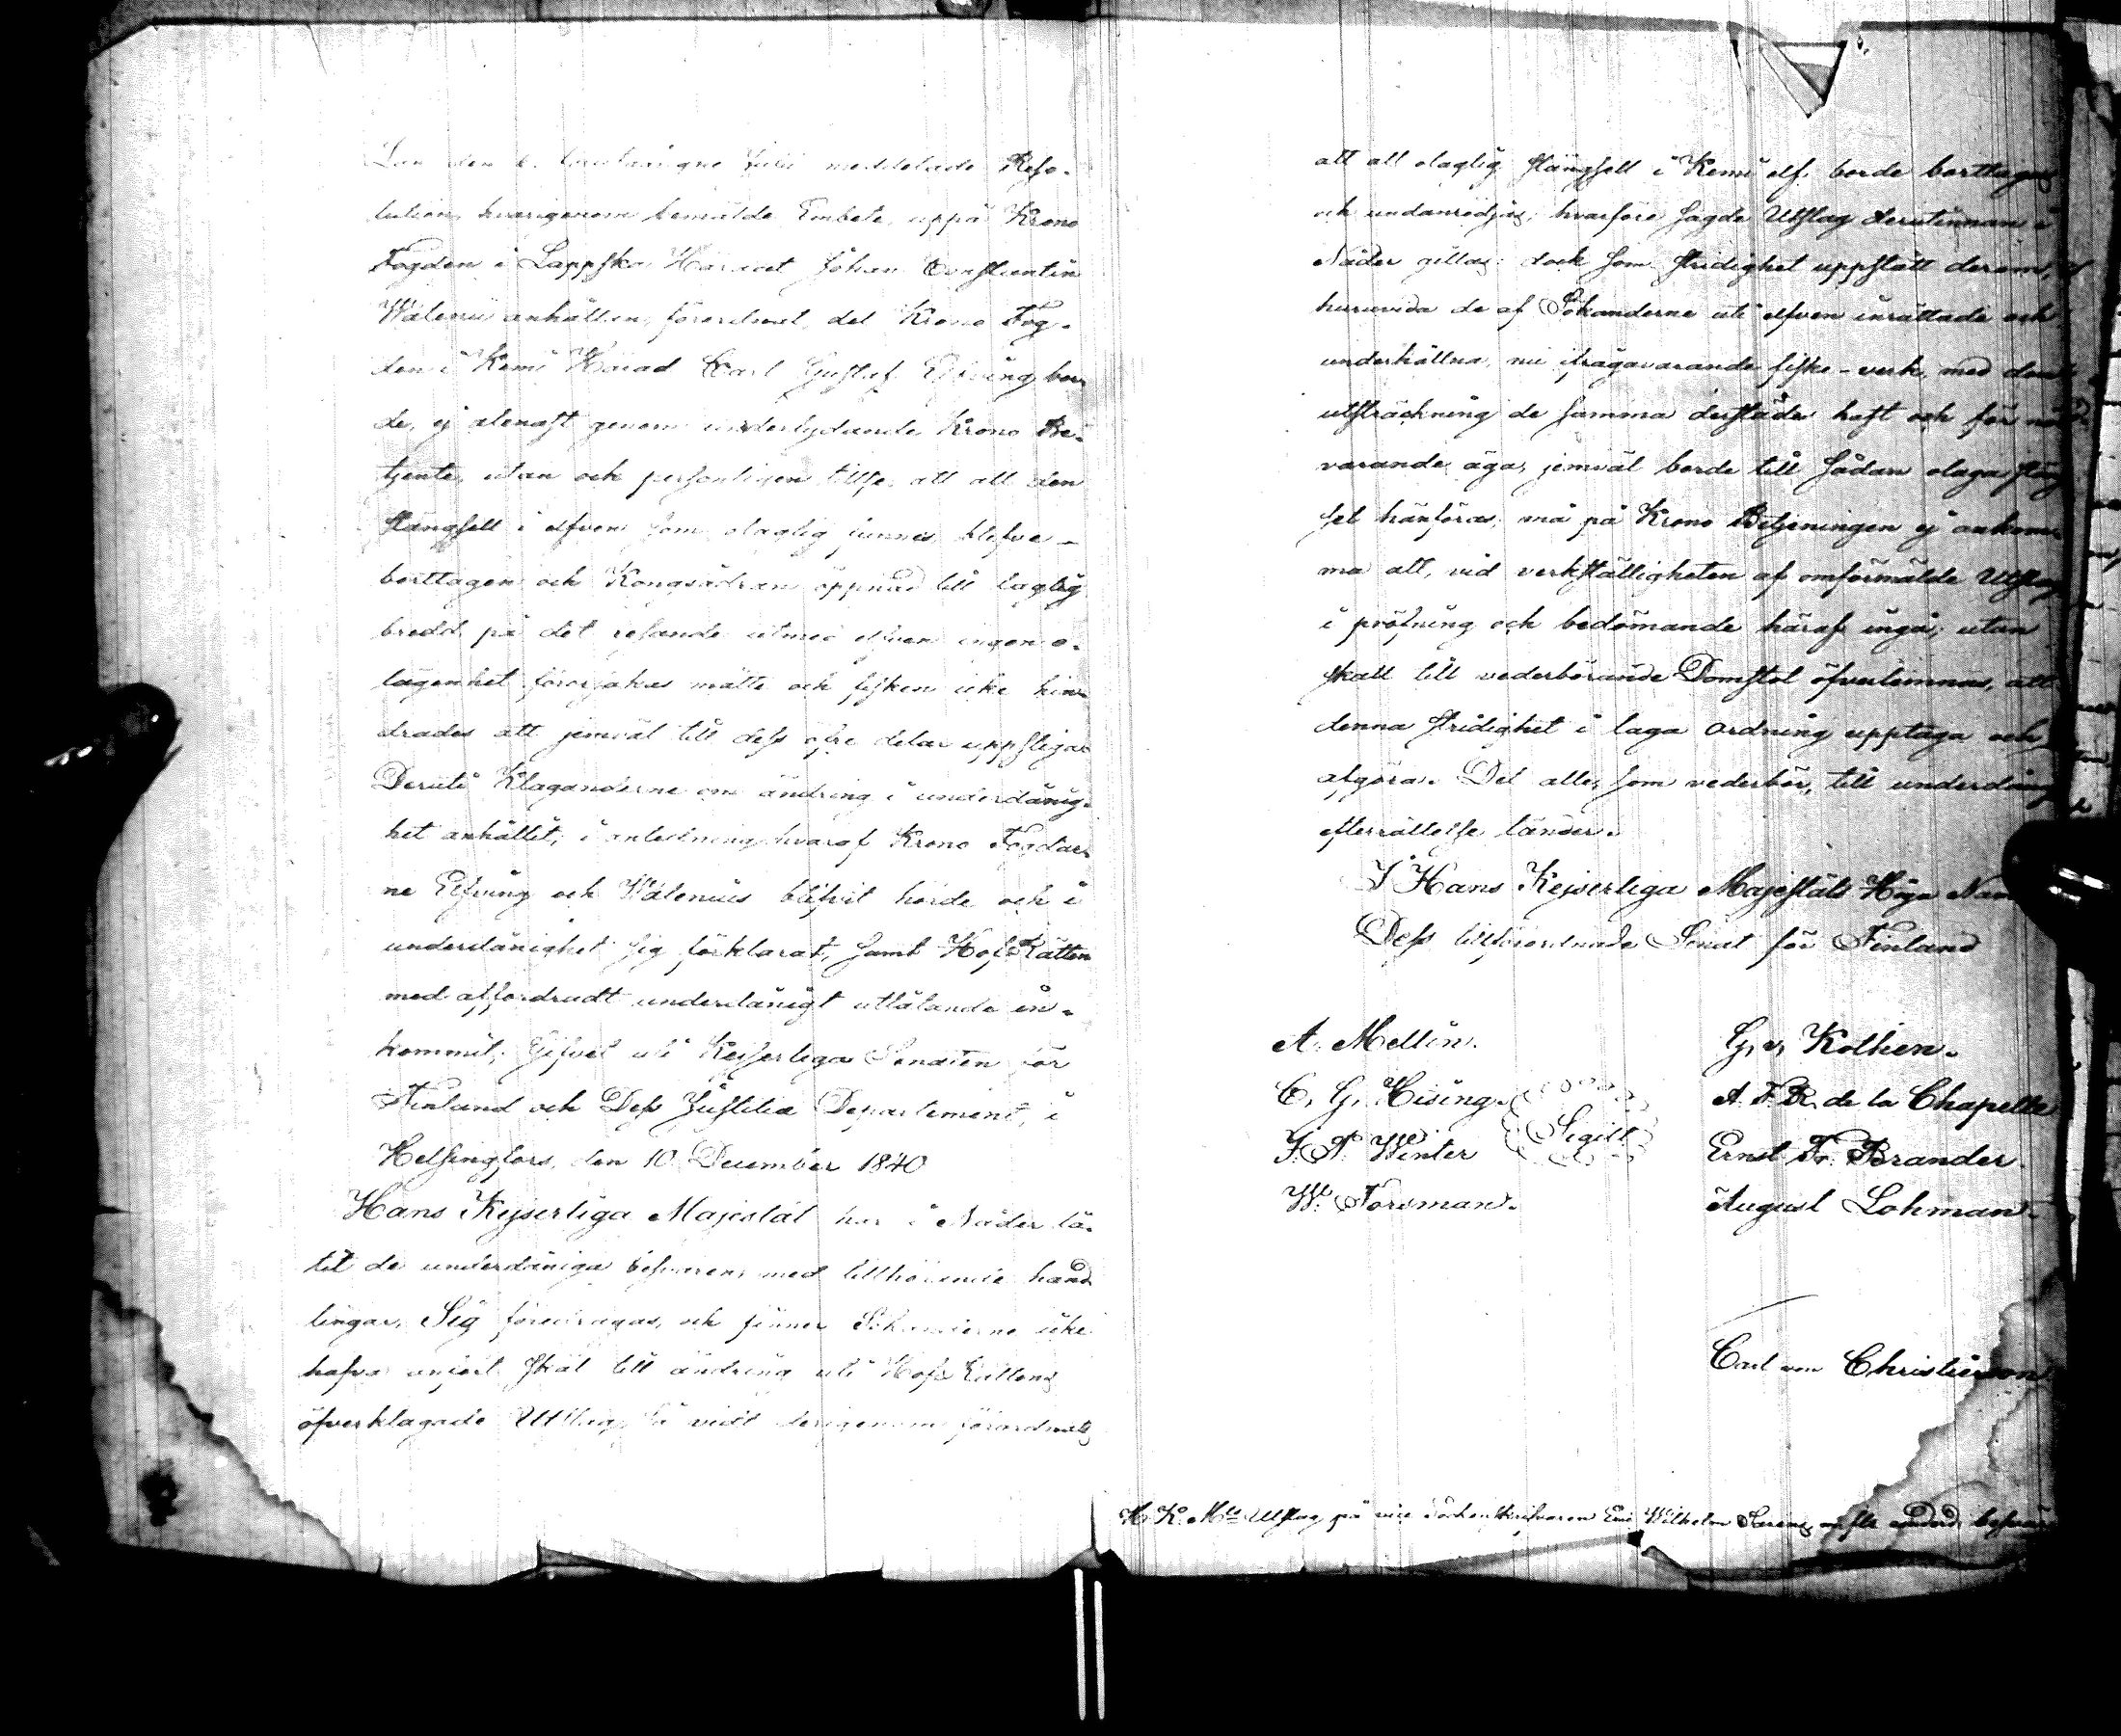 Län den 6. Julii meddelade Reso-
lution, hvarigenom bemälde Embete, uppå Krono
Fogden i Lappska Häradet Johan Constantin
Walenii anhållan, förordnat, det Krono Fog-
den i Kemi Härad Carl Gustaf Elfving bor-
de, ej allenast genom underlydande Krono Be-
tjente, utan och personligen tillse, att all den
stängsell i elfven som olaglig funnes blefve
borttagen och Kongsådran öppnad till laglig
bredd, på det resande utmed elfven ingen o-
lägenhet förorsakas måtte och fisken icke hin-
drades att jemväl till dess öfre delar uppstiga
Deruti Klaganderne om ändring i underdånig-
het anhållit; i anledning hvaraf Krono Fogdar-
ne Elfving och Walenius blifvit hörde och i
underdånighet sig förklarat, samt HofRätten
med affordradt underdånigt utlåtande in-
kommit; Gifvet uti Kejserliga Senaten för
Finland och Dess Justitiæ Departement, i
Helsingfors, den 10 December 1840
Hans Kejserliga Majestät har i Nåder lå-
tit de underdåniga besvären, med tillhörande hand-
lingar, Sig föredragas, och finner Sökanderne icke
hafva anfört skäl till ändring uti Hofs Rättens
öfverklagade Utslag, så vidt derigenom förordnats
att all olaglig stängsell i Kemi elf borde borttagas
och undanrödjas; hvarföre sagde Utslag derutinnan i
Nåder gillas: dock som stridighet uppstått derom,
huruvida de af Sökanderne uti elfven inrättade och
underhållna, nu ifrågavarande fiske-verk, med den
utsträckning de samma derstädes haft och för när-
varande äga, jemväl borde till sådan olaga stäng
sel hänföras, må på Krono Betjeningen ej ankom-
ma att, vid verkställigheten af omförmälde Utslag
i pröfning och bedömande häraf ingå; utan
skall till vederbörande Domstol öfverlemnas, att
denna stridighet i laga ordning upptaga och
afgöra. Det alle, som vederbör, till underdånig
efterrättelse länder.
I Hans Kejserliga Majestäts Höga Namn
Dess tillförordnade Senat för Finland
A. Mellin. G. v. Kothen.
C. G. Hising. A. F. R. de la Chapelle
J. A. Winter Sigill Ernst F. Brander.
W. Forsman. August Lohman.
Carl von Christierson
H. K. Mts Utslag på vice Sockenskrifvaren Wilhelm m. fls underd. besvär